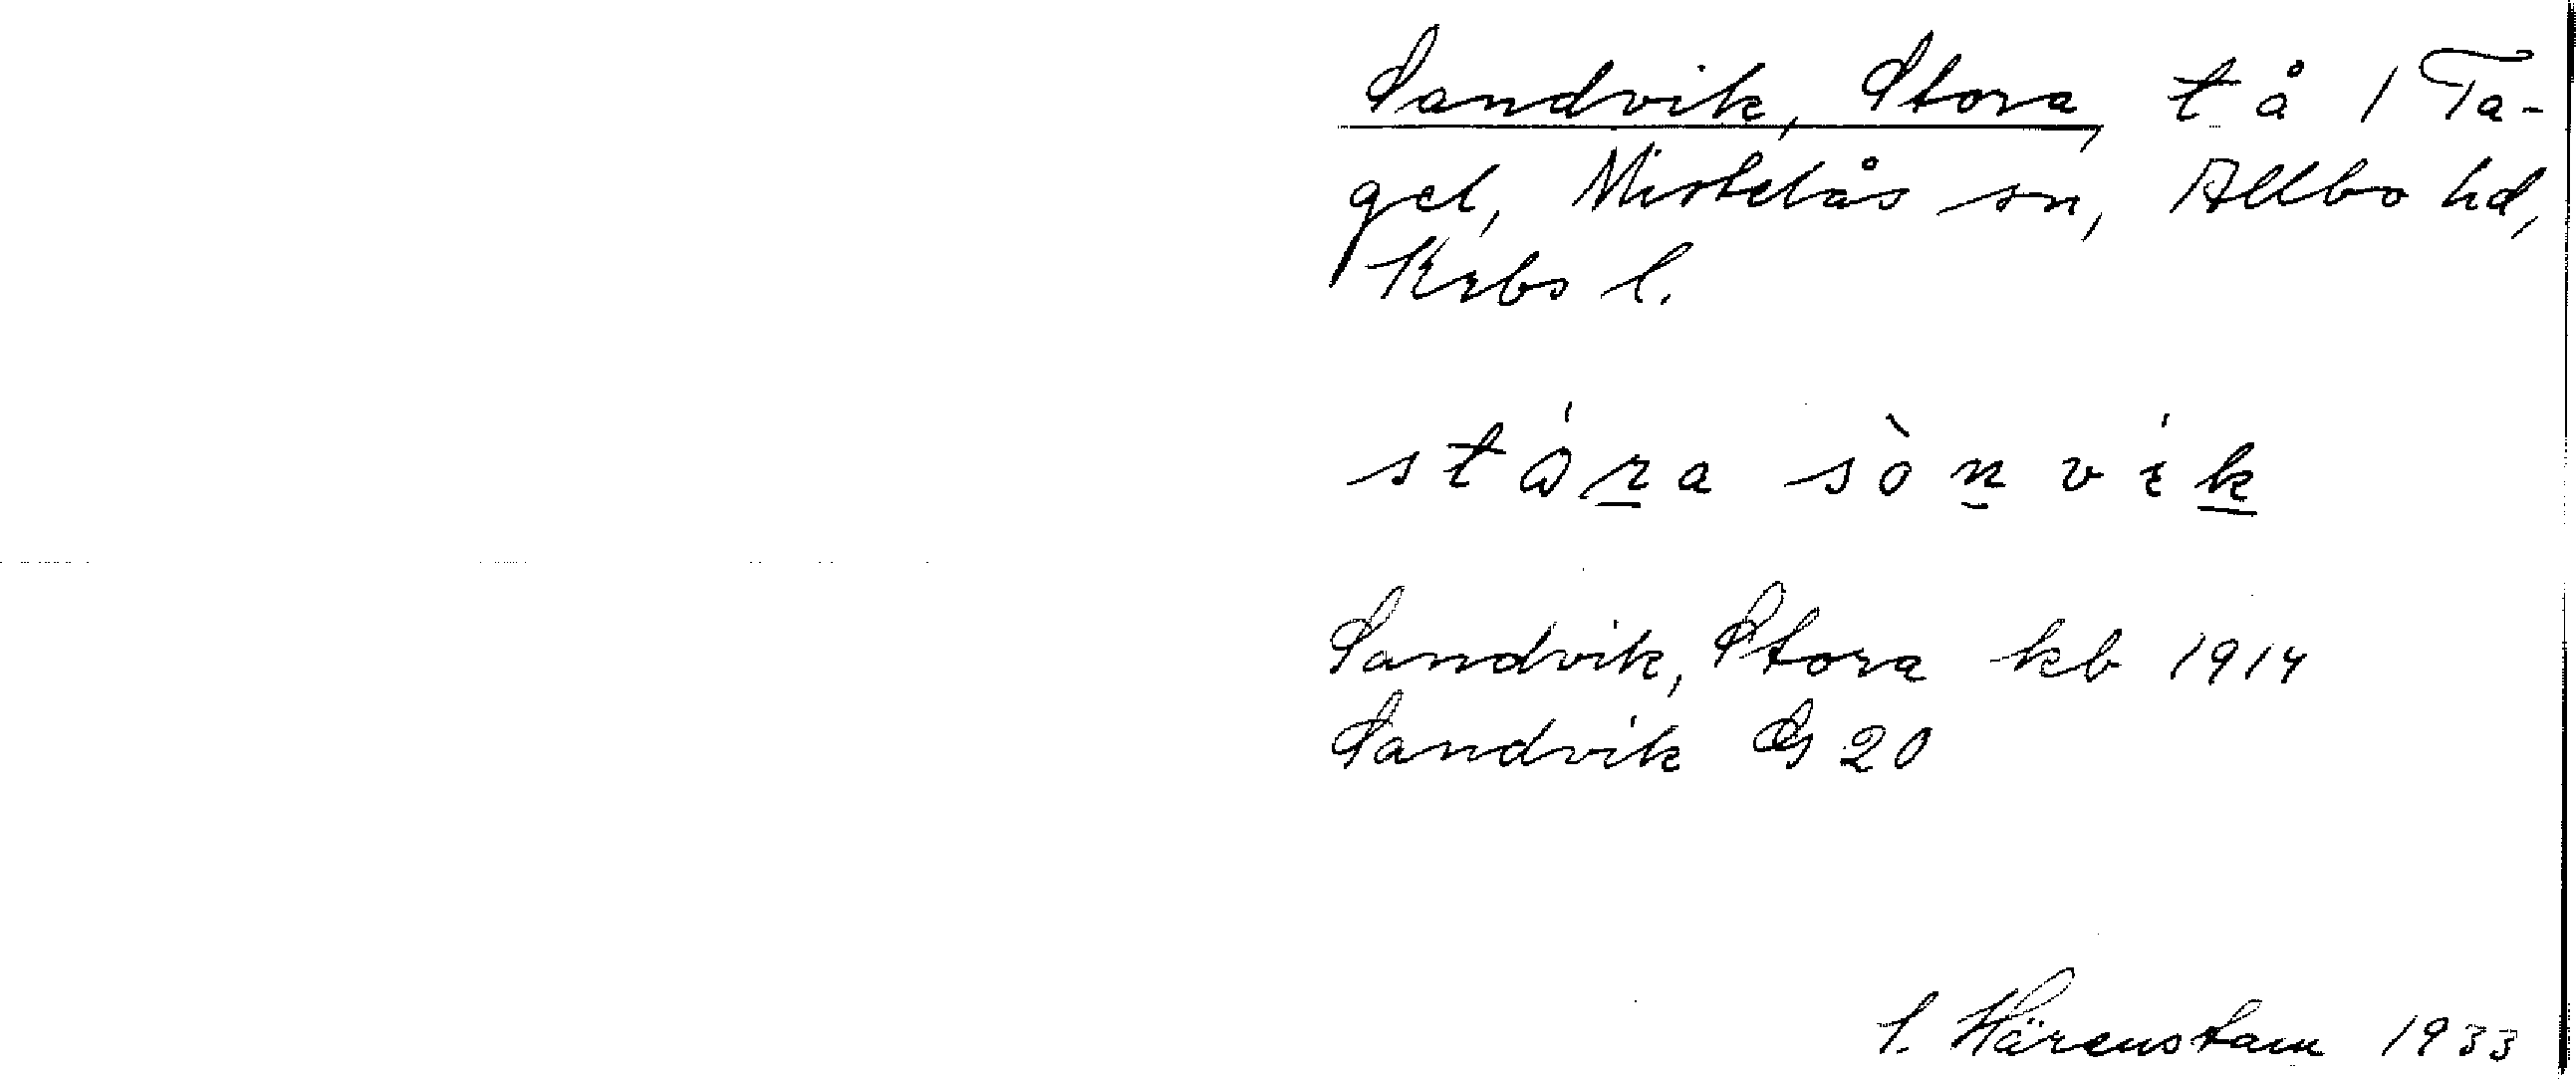 Sandvik, Stora, t å 1 Ta-
gel, Mistelås sn, Allbo hd,
Krbs l.
stóra sònvik
Sandvik, Stora kb 1914
Sandvik GS 20
S. Härenstam 1933